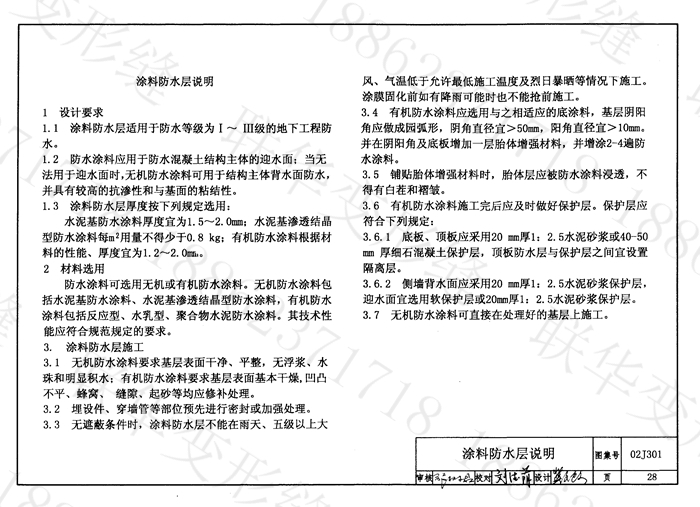 涂料防水层说明
1 设计要求
1.1 涂料防水层适用于防水等级为Ⅰ～Ⅲ级的地下工程防
水。
1.2 防水涂料应用于防水混凝土结构主体的迎水面；当无
法用于迎水面时,无机防水涂料可用于结构主体背水面防水,
并具有较高的抗渗性和与基面的粘结性。
1.3 涂料防水层厚度按下列规定选用：
水泥基防水涂料厚度宜为1.5～2.0mm；水泥基渗透结晶
型防水涂料每m²用量不得少于0.8 kg；有机防水涂料根据材
料的性能、厚度宜为1.2～2.0mm。
2 材料选用
防水涂料可选用无机或有机防水涂料。无机防水涂料包
括水泥基防水涂料、水泥基渗透结晶型防水涂料，有机防水
涂料包括反应型、水乳型、聚合物水泥防水涂料。其技术性
能应符合规范规定的要求。
3. 涂料防水层施工
3.1 无机防水涂料要求基层表面干净、平整，无浮浆、水
珠和明显积水；有机防水涂料要求基层表面基本干燥,凹凸
不平、蜂窝、缝隙、起砂等均应修补处理。
3.2 埋设件、穿墙管等部位预先进行密封或加强处理。
3.3 无遮蔽条件时，涂料防水层不能在雨天、五级以上大
风、气温低于允许最低施工温度及烈日暴晒等情况下施工。
涂膜固化前如有降雨可能时也不能抢前施工。
3.4 有机防水涂料应选用与之相适应的底涂料，基层阴阳
角应做成园弧形，阴角直径宜＞50mm，阳角直径宜＞10mm。
并在阴阳角及底板增加一层胎体增强材料，并增涂2-4遍防
水涂料。
3.5 铺贴胎体增强材料时，胎体层应被防水涂料浸透，不
得有白茬和褶皱。
3.6 有机防水涂料施工完后应及时做好保护层。保护层应
符合下列规定：
3.6.1 底板、顶板应采用20 mm厚1：2.5水泥砂浆或40-50
mm 厚细石混凝土保护层，顶板防水层与保护层之间宜设置
隔离层。
3.6.2 侧墙背水面应采用20 mm厚1：2.5水泥砂浆保护层，
迎水面宜选用软保护层或20mm厚1：2.5水泥砂浆保护层。
3.7 无机防水涂料可直接在处理好的基层上施工。
涂料防水层说明 图集号 02J301
审核 校对 设计 页 28
联华变形缝